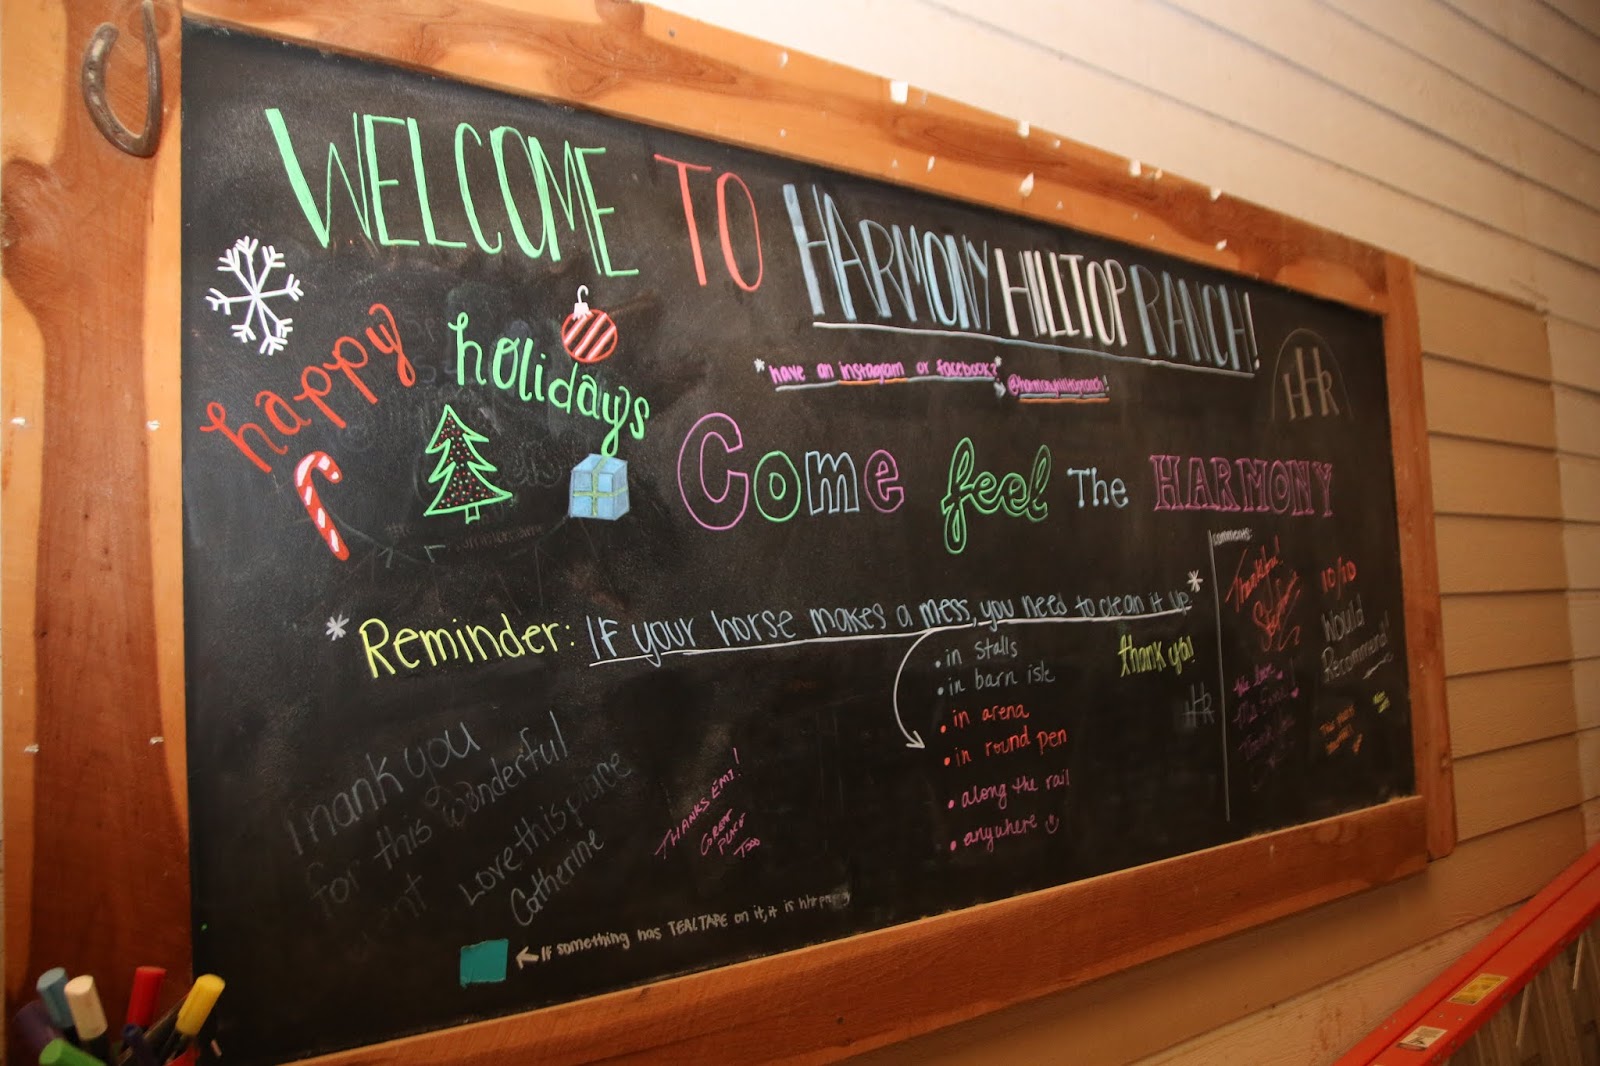 WELCOME TO HARMONY HILLTOP RANCH!
happy holidays
*have an instagram or facebook?*
@harmonyhilltopranch!
HHR
Come feel The HARMONY
* Reminder: IF your horse makes a mess, you need to clean it up *
• in stalls
• in barn isle
• in arena
• in round pen
• along the rail
• anywhere
thank you!
HHR
comments:
10/10
Would
Recommend!
Thank you
for this wonderful
Love this place
Catherine
THANKS EMI!
GREAT
PLACE
TOO
← IF something has TEAL TAPE on it, it is hhr